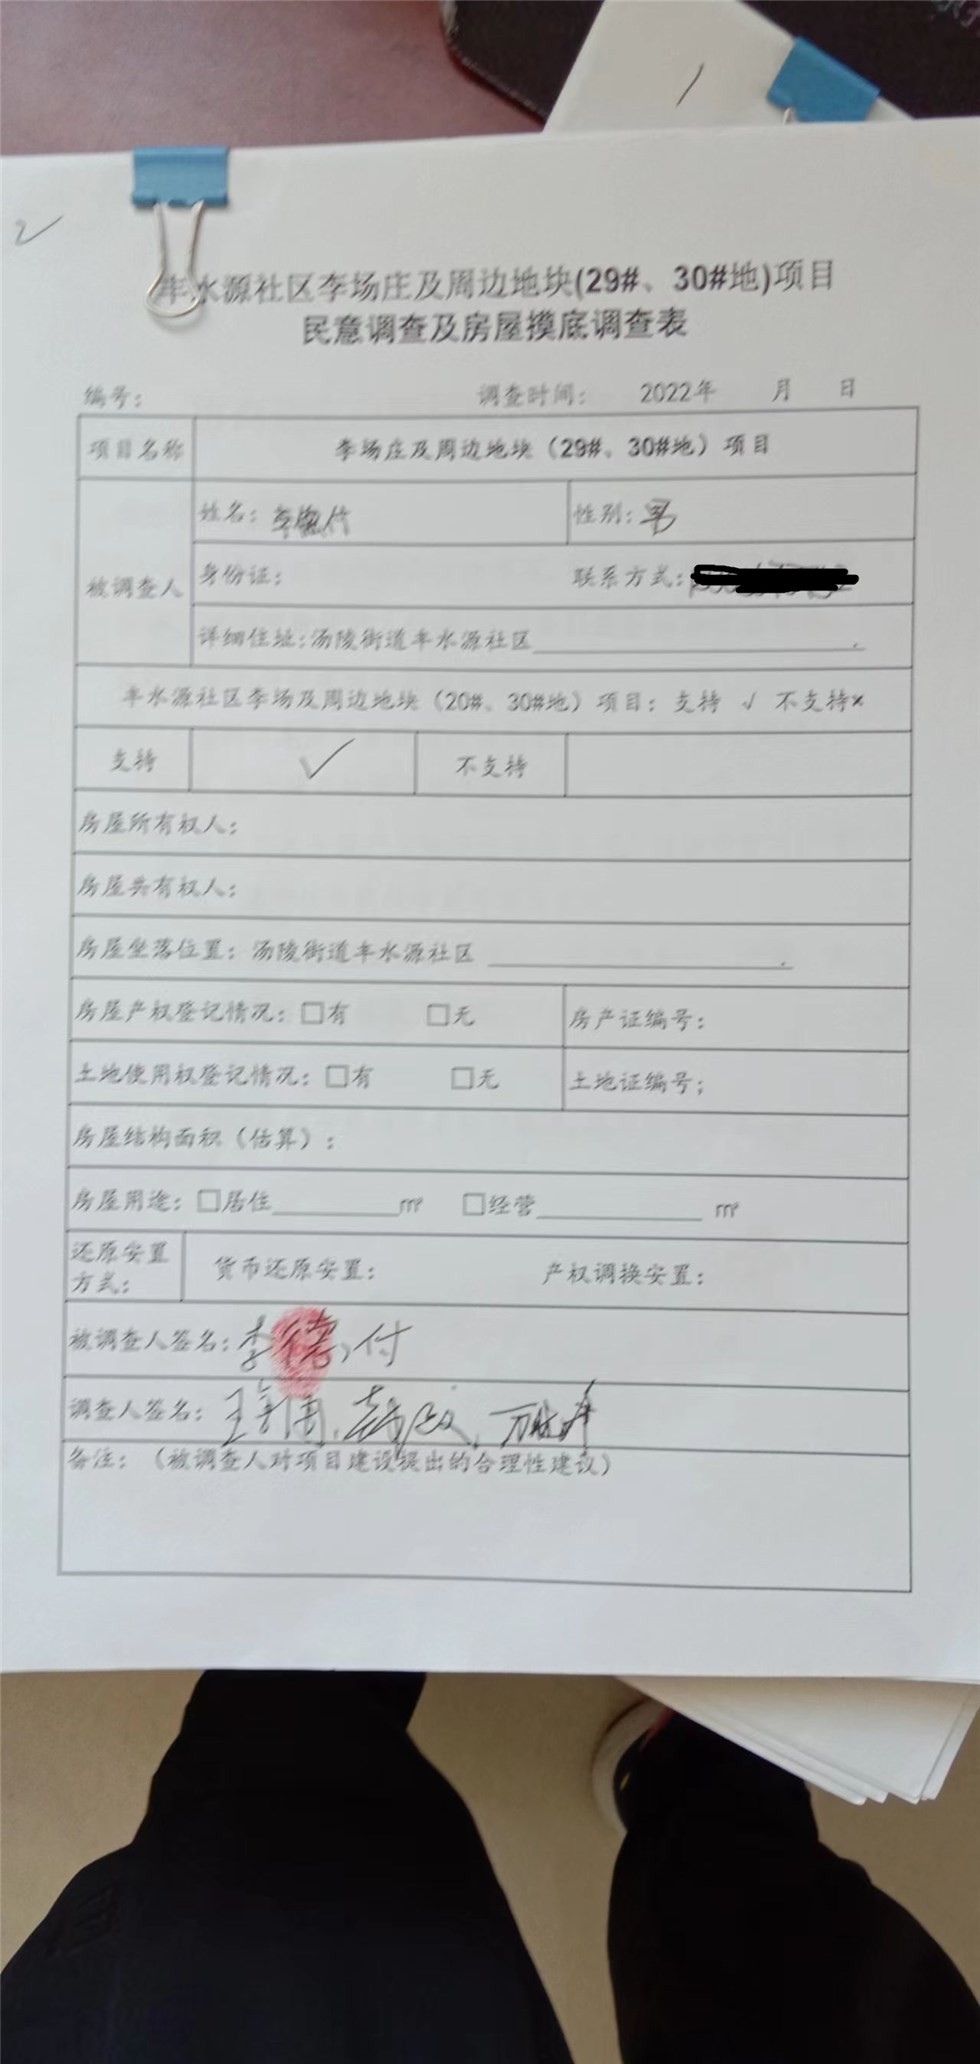 1
2
丰水源社区李场庄及周边地块(29#、30#地)项目
民意调查及房屋摸底调查表
编号： 调查时间： 2022年 月 日
项目名称 李场庄及周边地块（29#、30#地）项目
被调查人
姓名：李德付 性别：男
身份证： 联系方式：
详细住址：汤陵街道丰水源社区
丰水源社区李场及周边地块（20#、30#地）项目：支持 √ 不支持×
支持 ✓ 不支持
房屋所有权人：
房屋共有权人：
房屋坐落位置：汤陵街道丰水源社区
房屋产权登记情况：□有 □无 房产证编号：
土地使用权登记情况：□有 □无 土地证编号：
房屋结构面积（估算）：
房屋用途：□居住 ㎡ □经营 ㎡
还原安置
方式： 货币还原安置： 产权调换安置：
被调查人签名：李德付
调查人签名：
备注：（被调查人对项目建设提出的合理性建议）